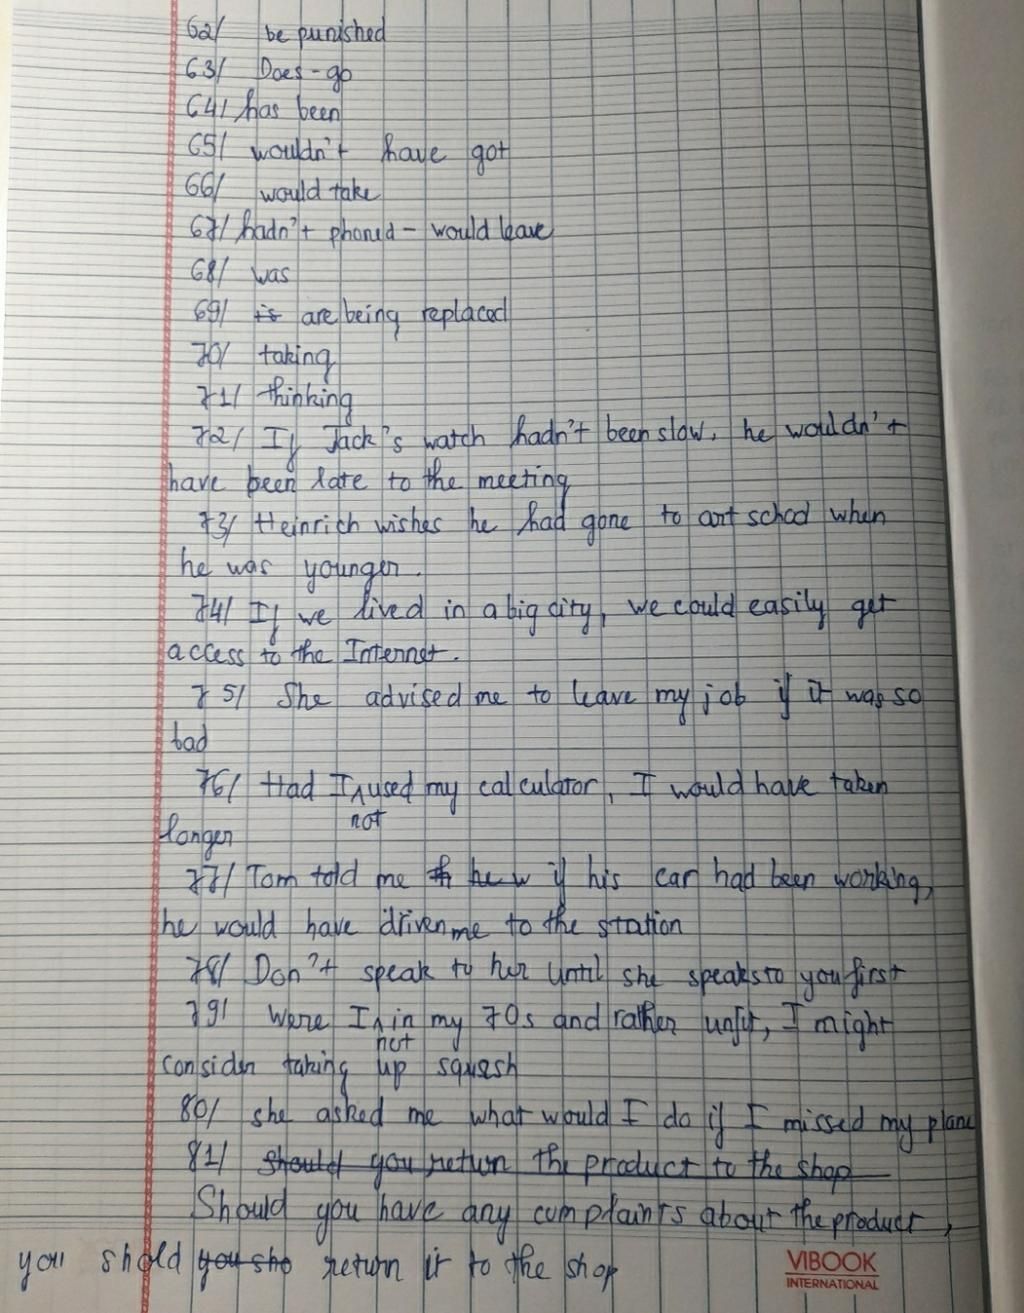 62/ be punished
63/ Does - go
64/ has been
65/ wouldn't have got
66/ would take
67/ hadn't phoned - would leave
68/ was
69/ is are being replaced
70/ taking
71/ thinking
72/ If Jack's watch hadn't been slow, he wouldn't
have been late to the meeting
73/ Heinrich wishes he had gone to art school when
he was younger.
74/ If we lived in a big city, we could easily get
access to the Internet.
75/ She advised me to leave my job if it was so
bad
76/ Had I not used my calculator, I would have taken
longer
77/ Tom told me th he w if his car had been working,
he would have driven me to the station
78/ Don't speak to her until she speaks to you first
79/ Were I not in my 70s and rather unfit, I might
consider taking up squash
80/ she asked me what would I do if I missed my plane
81/ should you return the product to the shop
Should you have any complaints about the product,
you shold you sho return it to the shop
VIBOOK
INTERNATIONAL